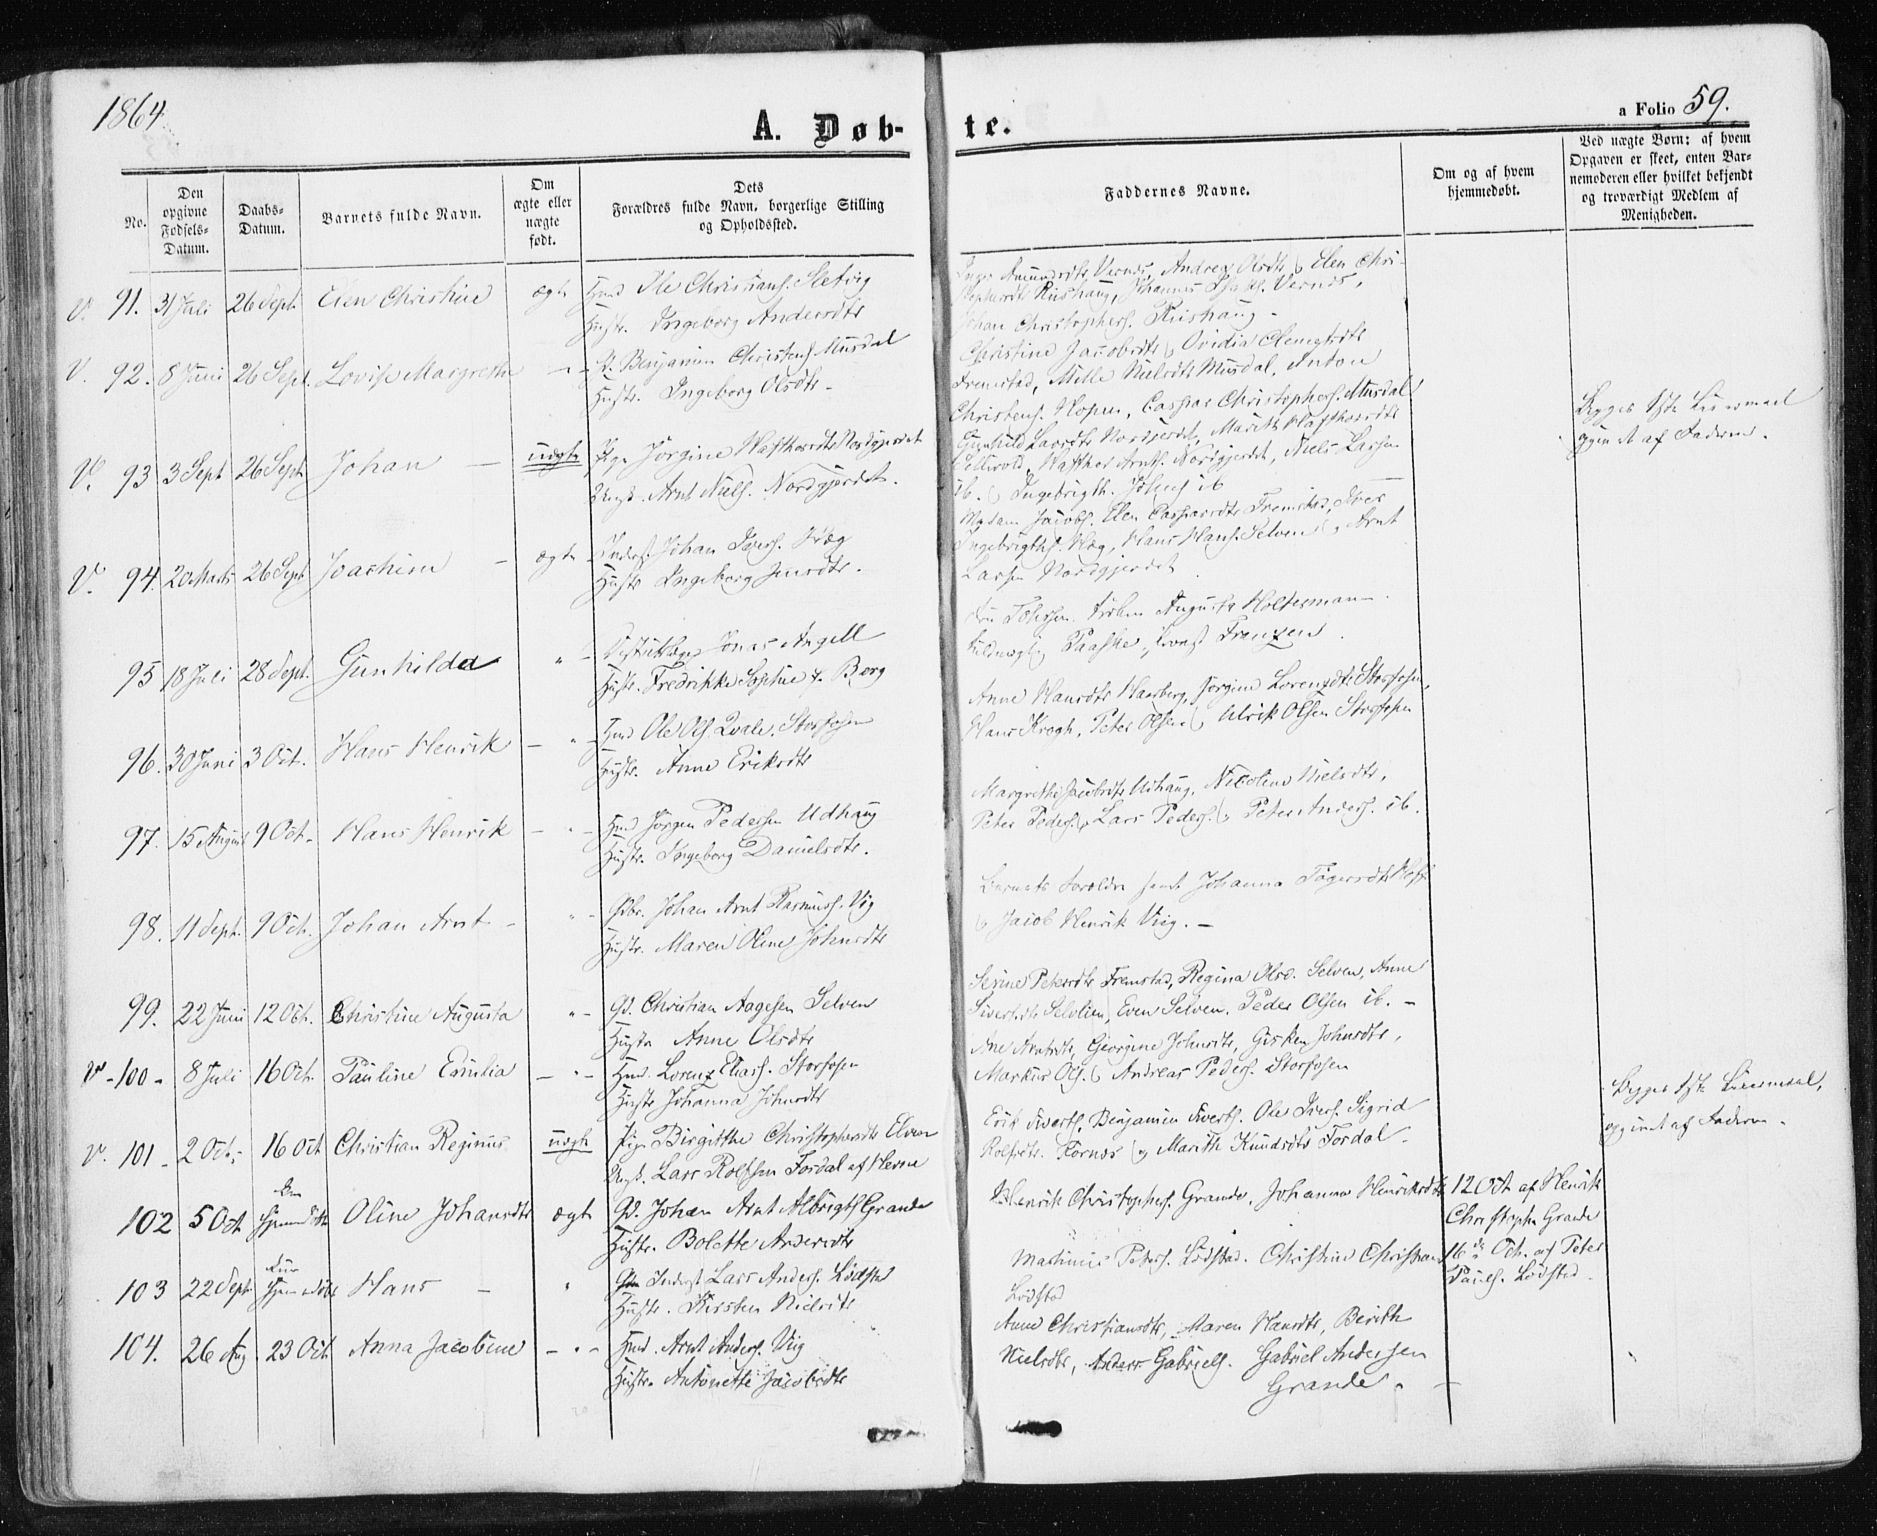 1864.
A. Døb-
te.
a Folio 59.
No.
Den opgivne Fødsels-Datum.
Daabs-Datum.
Barnets fulde Navn.
Om ægte eller nægte født.
Dets Forældres fulde Navn, borgerlige Stilling og Opholdssted.
Faddernes Navne.
Om og af hvem hjemmedøbt.
Ved nægte Børn: af hvem Opgaven er skeet, enten Barnemoderen eller hvilket bekjendt og troværdigt Medlem af Menigheden.
V. 91. 31 Juli 26 Sept. Elen Christine ægte Hmd Ole Christians. Sletvig
Hustr. Ingeborg Andersdtr
Vernes, Andrea Olsdtr, Elen Chri-
Rishaug, Johannes Vernes,
Johan Christophers. Rishaug -
V. 92. 8 Juni 26 Sept. Lovise Margrethe - " - Benjamin Christens. Musdal
Hustr. Ingeborg Olsdtr -
Christine Jacobsdtr, Ovidia Clemetsdtr
Fremstad, Mille Nielsdtr Musdal, Anton
Christens. Hopen, Caspar Christophers. Musdal
V. 93 3 Sept 26 Sept. Johan - uægte Pige Jørgine Nordgjerdet
Ungk. Arnt Niels. Nordgjerdet.
Gunhild Larsdtr Nordgjerdet, Marith
Arnts. Nordgjerdet, Niels Larsen
ib. Ingebrigth. Johns. ib
Begges 1ste Leiermaal
af Faderen.
V. 94. 20 Marts 26 Sept Joachim - ægte Inderst Johan Ivers.
Hustr Ingeborg Jensdtr.
Madam Jacobs. Elen Caspersdtr Fremstad, Iver
Ingebrigths. Hans Hans. Selven, Arnt
Larsen Nordgjerdet
95 18 Juli 28 Sept. Gunhilda " - Distriktslæge Jonas Angell
Hustr. Fredrikke Sophie f. Berg
Augusta Holtermann.
Paaske, Frenzen.
96. 30 Juni 3 Oct. Hans Henrik - " - Hmd Ole Ols. Qvale, Storfosen
Hustr. Anne Eriksdtr
Anne Hansdtr Haarberg, Jørgine Lorenzdtr Storfosen,
Hans Krogh, Peter Olsen, Ulrik Olsen Storfosen
97. 15 August 9 Oct. Hans Henrik - " - Hmd Jørgen Pedersen Udhaug
Hustr. Ingeborg Danielsdtr.
Margrethe Jacobsdtr Udhaug, Nicoline Nielsdtr,
Peter Peders., Lars Peders., Peter Anders. ib.
98. 11 Sept. 9 Oct. Johan Arnt - " - Gbr. Johan Arnt Rasmus. Vig
Hustr. Maren Oline Johnsdtr
Barnets Forældre samt Johanna
Jacob Henrik Viig. -
99. 22 Juni 12 Oct. Christine Augusta " - Gd. Christian Aagesen Selven
Hustr Anne Olsdtr
Serine Petersdtr Fremstad, Regina Olsd. Selven, Anne
Sivertsdtr. Even Selven. Peder Olsen ib. -
V - 100 - 8 Juli 16 Oct. Pauline Emilia - " - Hmd. Lorenz Elias. Storfosen
Hustr Johanna Johnsdtr
Ane Arntsdtr, Georgine Johnsdtr, Gisken Johnsdtr,
Markus Ols. Andreas Peders. Storfosen
V. 101 - 2 Oct. 16 Oct Christian Reginus. uægte Pige Birgitthe Christophersdtr Elven
Ungk. Lars Rolfsen Fordal af Hevne
Erik Siverts., Benjamin Siverts. Ole Ivers. Sigrid
Rolfsdtr. Marith Knudsdtr Fordal.
Begges 1ste Leiermaal,
af Faderen -
102 5 Oct. Oline Johansdtr ægte Gd. Johan Arnt Albrigts. Grande
Hustr. Bolette Andersdtr
Henrik Christophers. Grande, Johanna Henriksdtr
12 Oct af Henrik
Christophs. Grande
103 22 Sept. Hans - " Inderst Lars Anders. Lodstad
Hustr. Kirsten Nielsdtr
Martinus Peters. Lodstad. Christine
Lodstad
16de Oct. af Peter
Pauls. Lodstad.
104. 26 Aug. 23 Oct. Anna Jacobine - " - Hmd. Arnt Anders. Viig
Hustr. Antonette Jacobsdtr
Anne Christiansdtr, Maren Hansdtr, Berith
Nielsdtr, Anders Gabriels. Gabriel Andersen
Grande. -